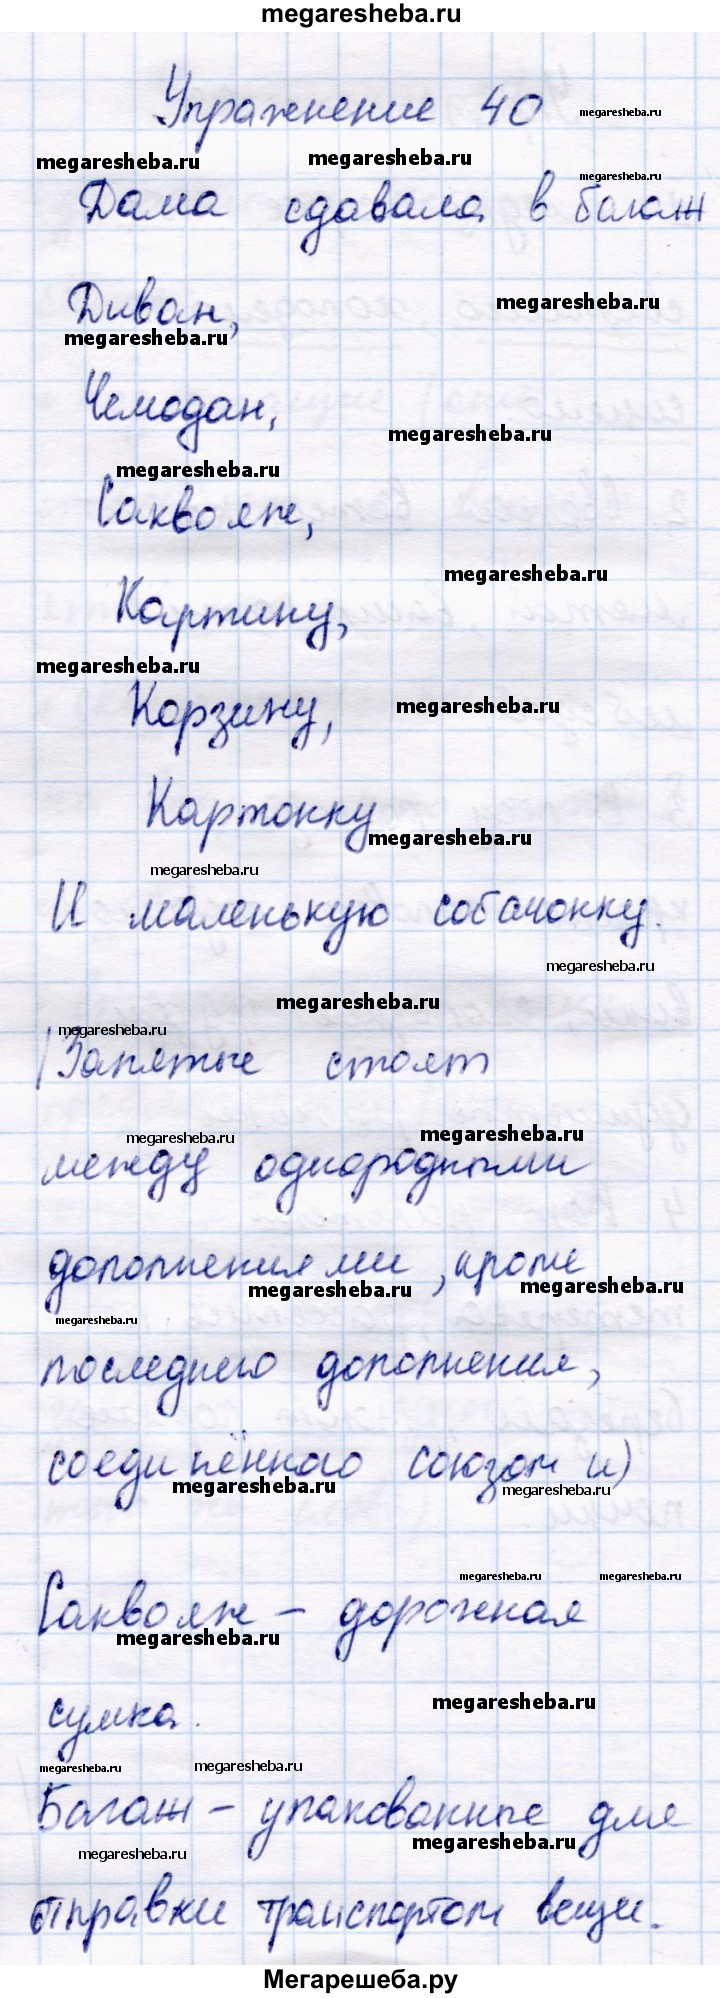 megaresheba.ru
Упражнение 40
megaresheba.ru
megaresheba.ru
megaresheba.ru
megaresheba.ru
Дама сдавала в багаж
Диван,
megaresheba.ru
megaresheba.ru
Чемодан,
megaresheba.ru
megaresheba.ru
Саквояж,
megaresheba.ru
Картину,
megaresheba.ru
Корзину,
megaresheba.ru
Картонку
megaresheba.ru
megaresheba.ru
И маленькую собачонку.
megaresheba.ru
megaresheba.ru
megaresheba.ru
(Запятые стоят
megaresheba.ru
megaresheba.ru
между однородными
дополнениями, кроме
megaresheba.ru
megaresheba.ru
megaresheba.ru
последнего дополнения,
соединённого союзом и)
megaresheba.ru
megaresheba.ru
megaresheba.ru
megaresheba.ru
Саквояж – дорожная
megaresheba.ru
сумка.
megaresheba.ru
megaresheba.ru
megaresheba.ru
Багаж – упакованные для
megaresheba.ru
megaresheba.ru
отправки транспортом вещи.
Мегарешеба.ру